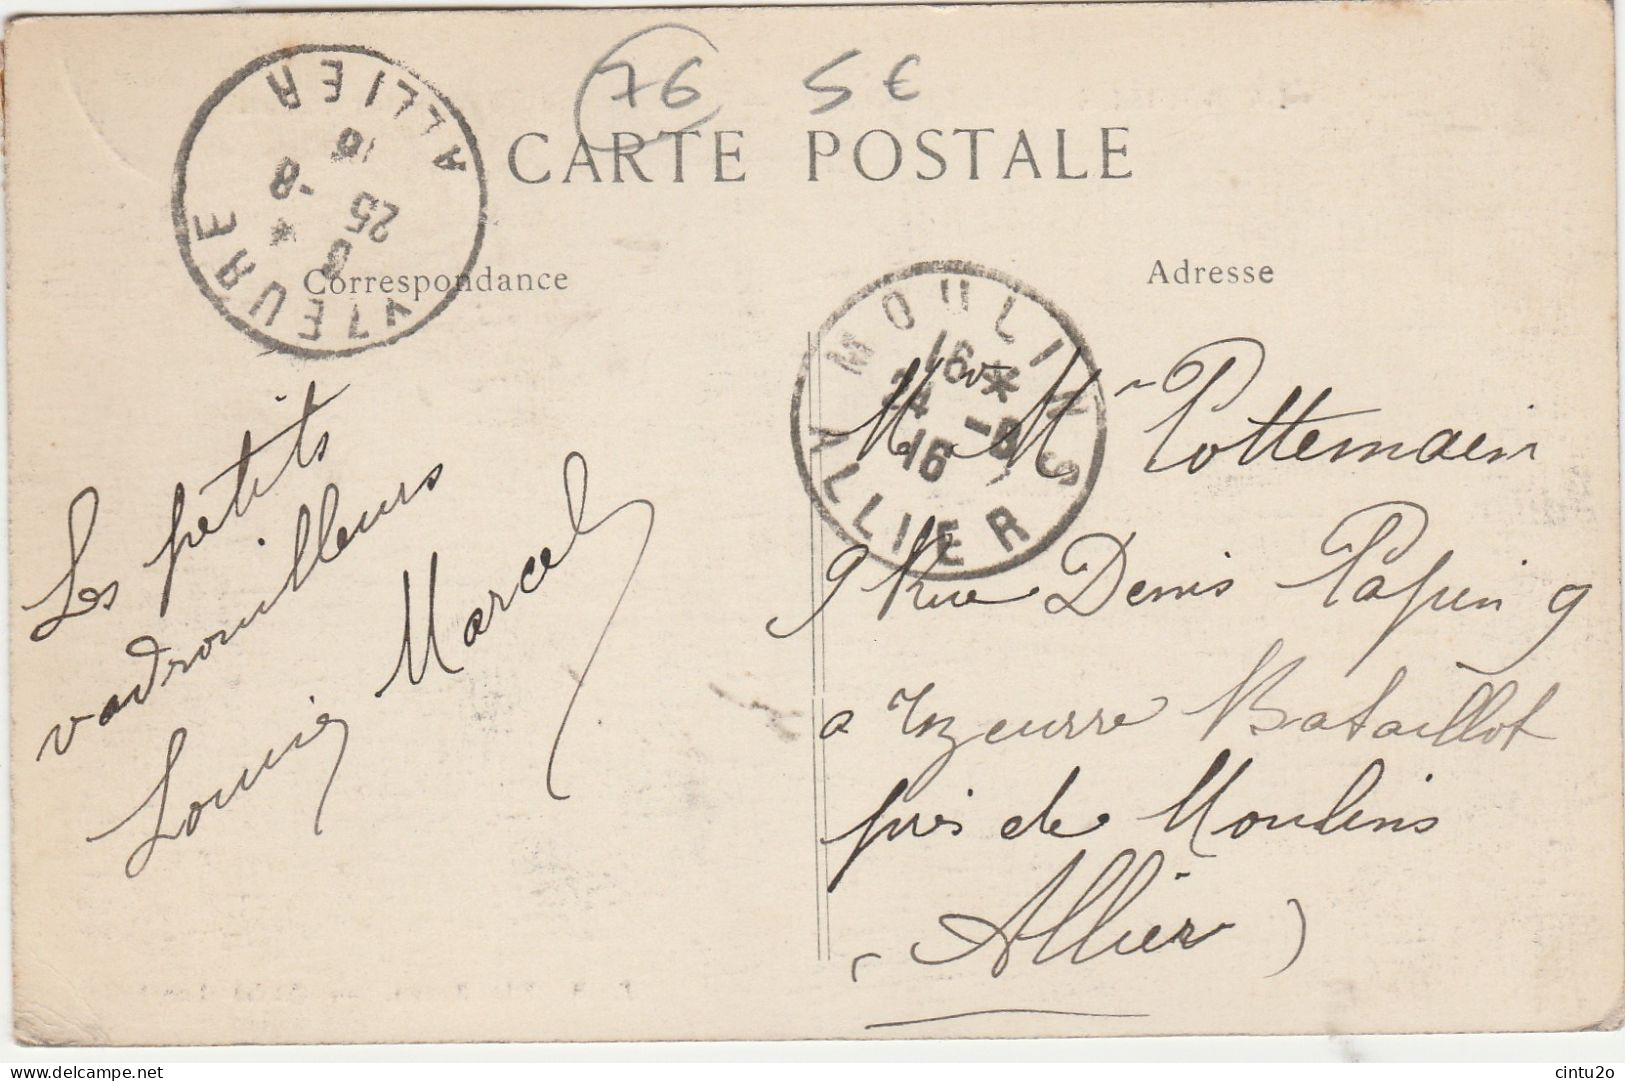 76 5€
CARTE POSTALE
Correspondance
Adresse
VIEURE ALLIER
8 *
25 -8
16
MOULINS ALLIER
16 *
24 -8
16
Les petits
vadrouilleurs
Louis Marcel
Mr Mme Pottemain
9 Rue Denis Papin 9
a Yzeurre Bataillot
près de Moulins
(Allier)
Delcampe.net
cintu2o